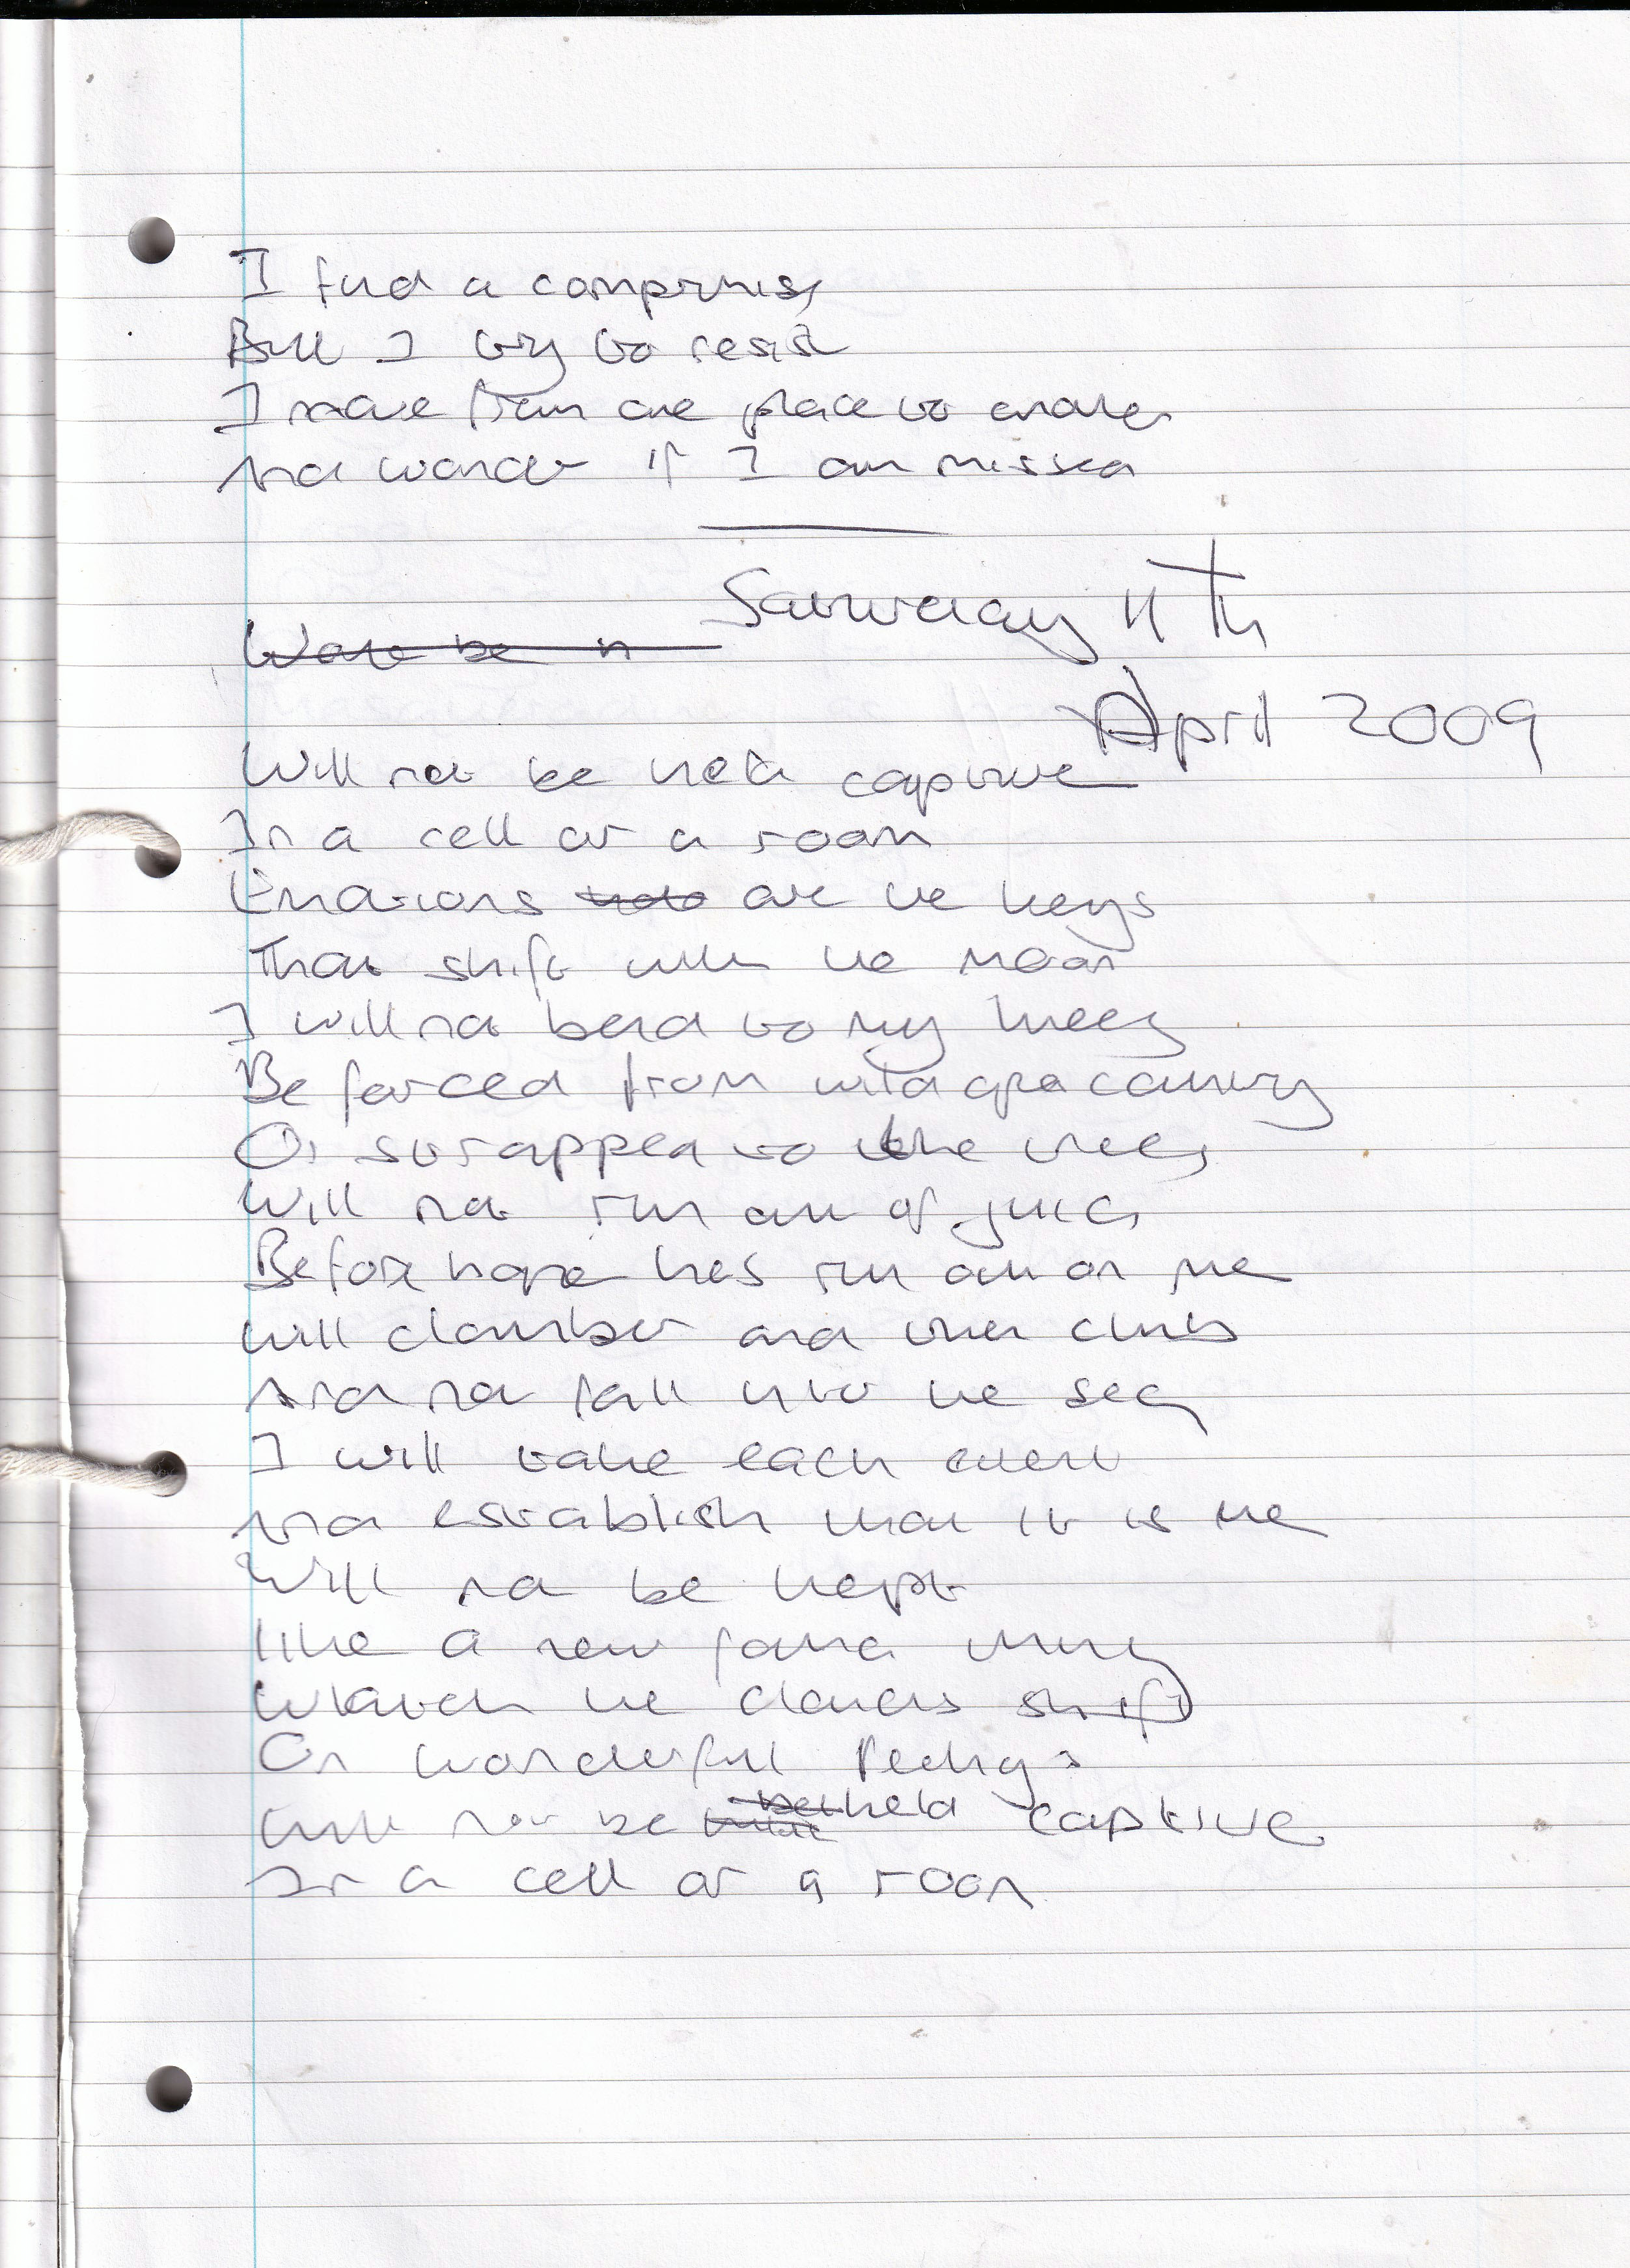 I find a compromise
But I try to resist
I move from one place to another
And wonder if I am missed
Saturday 11th
April 2009
Will not be held captive
In a cell or a room
Emotions are the keys
That shift with the moon
I will not bend to my knees
Be forced from country
Or strapped to the trees
Will not run out of juice
Before hope has run out on me
Will clamber and then climb
And not fall into the sea
I will take each event
And establish that it is me
Will not be kept
like a new found thing
Watch the clouds shift
On wonderful feelings
Will not be held captive
In a cell or a room